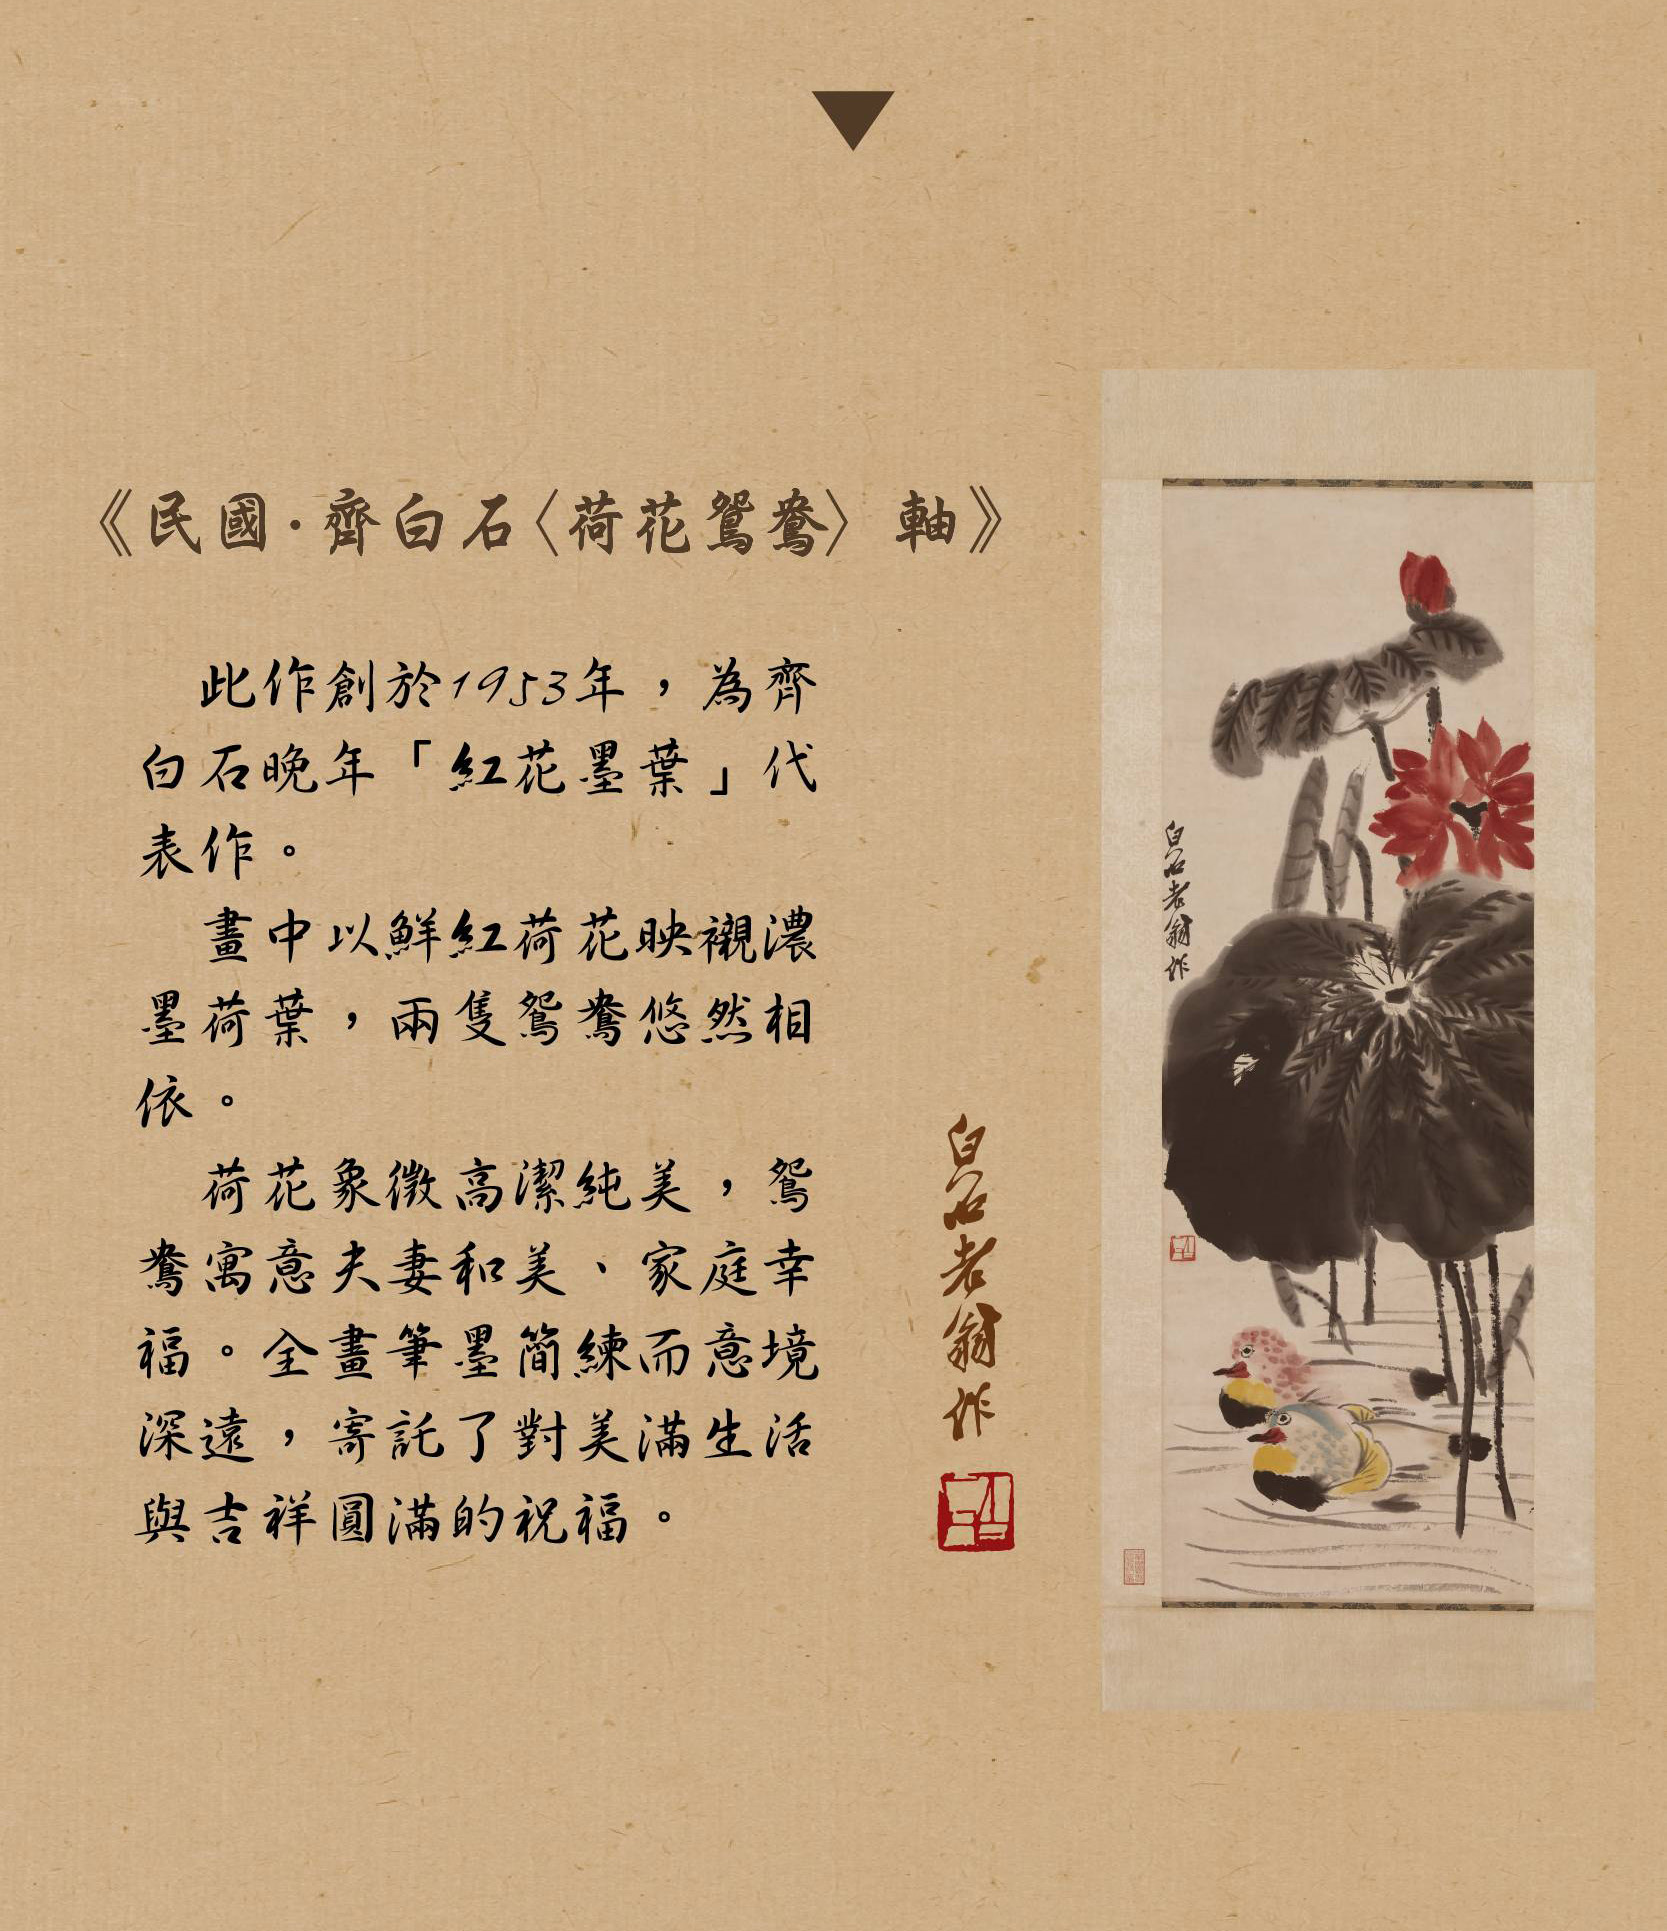 《民國·齊白石〈荷花鴛鴦〉 軸》
此作創於1953年，為齊
白石晚年「紅花墨葉」代
表作。
畫中以鮮紅荷花映襯濃
墨荷葉，兩隻鴛鴦悠然相
依。
荷花象徵高潔純美，鴛
鴦寓意夫妻和美、家庭幸
福。全畫筆墨簡練而意境
深遠，寄託了對美滿生活
與吉祥圓滿的祝福。
白石老翁作
白石老翁作